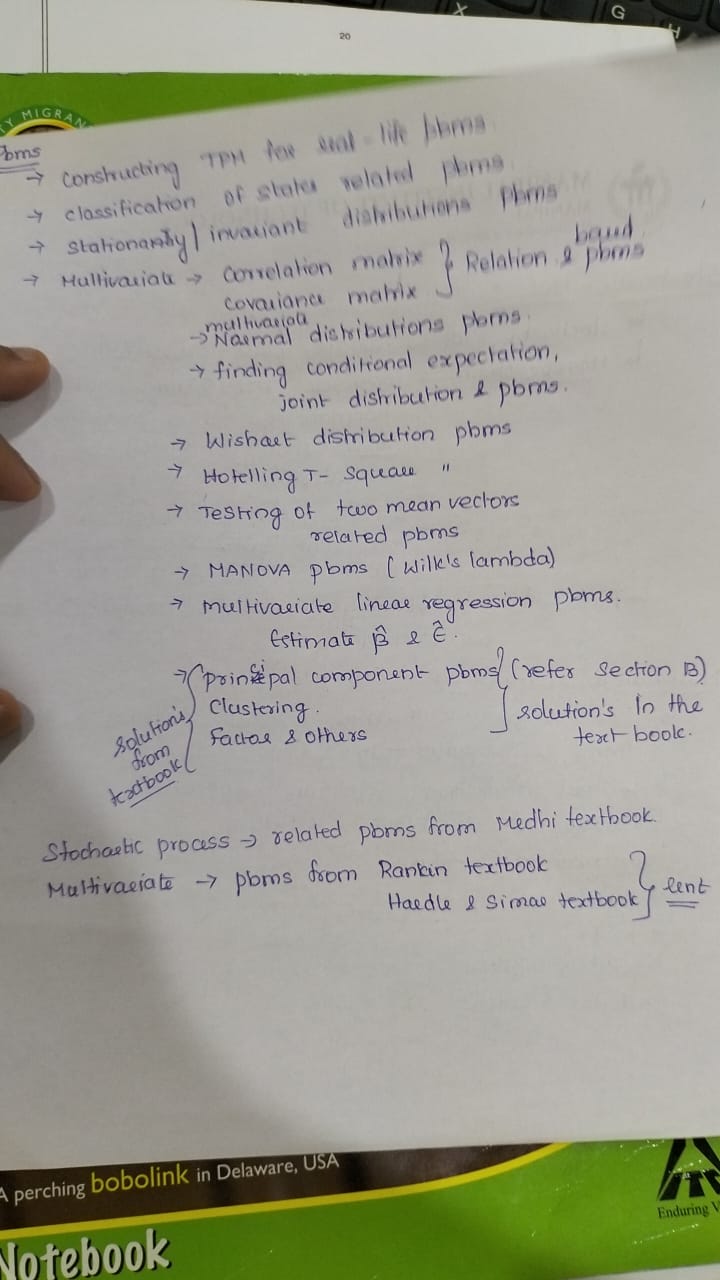 20
Y MIGRAN
Pbms
→ Constructing TPM for real-life pbms.
→ classification of states related pbms.
→ Stationarity / invariant distributions pbms
→ Multivariate → Correlation matrix } Relation & based pbms
covariance matrix
→ multivariate Normal distributions pbms.
→ finding conditional expectation,
joint distribution & pbms.
→ Wishart distribution pbms
→ Hotelling T- Square "
→ Testing of two mean vectors
related pbms
→ MANOVA pbms ( Wilk's lambda)
→ multivariate linear regression pbms.
Estimate β̂ & ε̂.
→ principal component pbms (refer Section B)
Clustering.
Factor & others
solution's in the
text book.
Solution's
from
textbook
Stochastic process → related pbms from Medhi textbook.
Multivariate → pbms from Rankin textbook
Haedle & Simar textbook } lent
A perching bobolink in Delaware, USA
Enduring V
Notebook
X
G
H